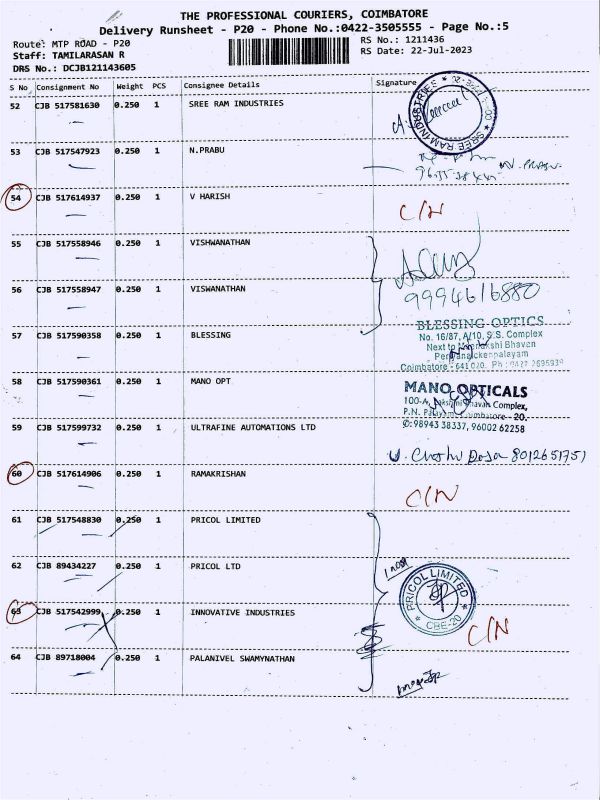 THE PROFESSIONAL COURIERS, COIMBATORE
Delivery Runsheet - P20 - Phone No.:0422-3505555 - Page No.:5
Route: MTP ROAD - P20
RS No.: 1211436
Staff: TAMILARASAN R
RS Date: 22-Jul-2023
DRS No.: DCJB121143605
S No Consignment No Weight PCS Consignee Details Signature
52 CJB 517581630 0.250 1 SREE RAM INDUSTRIES
SREE RAM INDUSTRIES
53 CJB 517547923 0.250 1 N.PRABU
54 CJB 517614937 0.250 1 V HARISH
C/N
55 CJB 517558946 0.250 1 VISHWANATHAN
56 CJB 517558947 0.250 1 VISWANATHAN
9994616880
57 CJB 517590358 0.250 1 BLESSING
BLESSING OPTICS
No. 16/87, A/10, S.S. Complex
Next to Bhavan
Coimbatore - 641 020. Ph : 0422 2695939
58 CJB 517590361 0.250 1 MANO OPT
MANO OPTICALS
100-A, Bhavan Complex,
P.N. Coimbatore - 20.
✆: 98943 38337, 96002 62258
59 CJB 517599732 0.250 1 ULTRAFINE AUTOMATIONS LTD
8012651751
60 CJB 517614906 0.250 1 RAMAKRISHAN
C/N
61 CJB 517548830 0.250 1 PRICOL LIMITED
62 CJB 89434227 0.250 1 PRICOL LTD
PRICOL LIMITED
CBE-20
63 CJB 517542999 0.250 1 INNOVATIVE INDUSTRIES
C/N
64 CJB 89718004 0.250 1 PALANIVEL SWAMYNATHAN